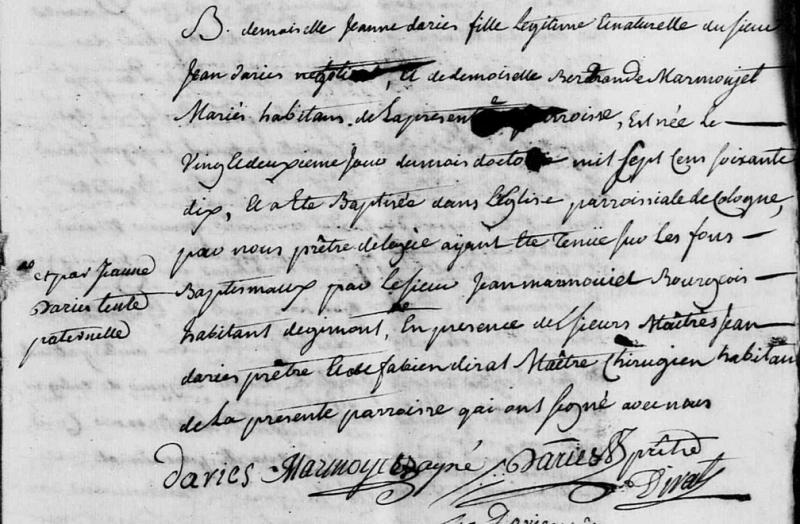 B. demoiselle Jeanne daries fille Legitime & naturelle du sieur
Jean daries negotiant, Et de demoiselle Bertrande Marmoujet
Mariés habitans de La presente parroisse, Est née Le
vingt deuxieme Jour du mois doctobre mil sept Cens soixante
dix, Et a Ete Baptisée dans L'Eglise parroissiale de Cologne,
par nous prêtre delogie ayant Ete Tenüe sur Les fons
Baptismaux par Le sieur Jean marmouiet Bourgeois
habitant degimont, En presence de sieurs Maîtres Jean
daries prêtre Et de fabien dirat Maître Chirugien habitan
de La presente parroisse qui ont signé avec nous
et par Jeanne
Daries tente
paternelle
Daries Marmouyet Daries prêtre
Dirat